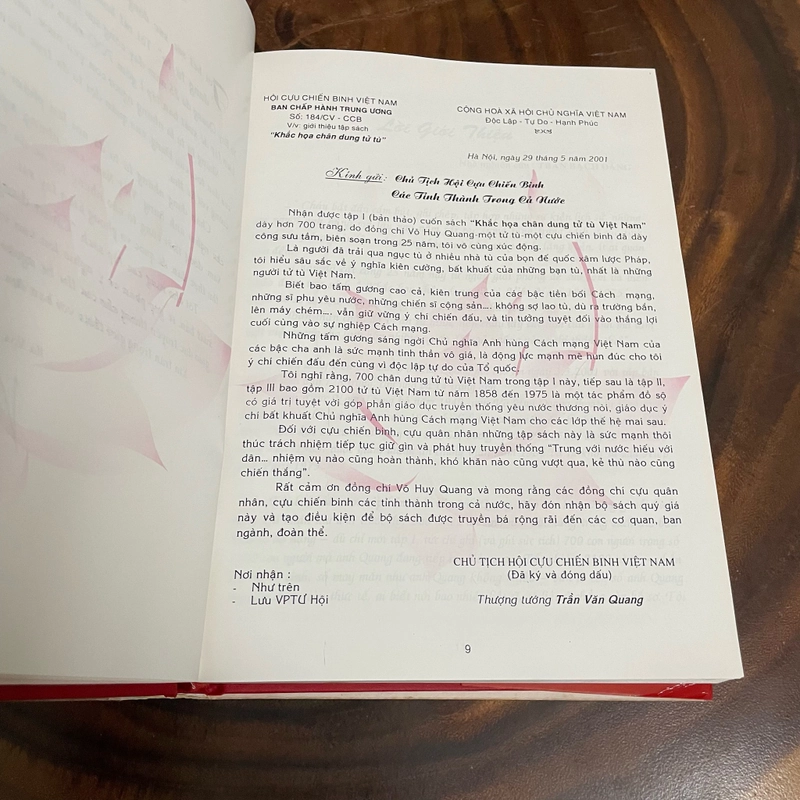 HỘI CỰU CHIẾN BINH VIỆT NAM
BAN CHẤP HÀNH TRUNG ƯƠNG
Số: 184/CV - CCB
V/v: giới thiệu tập sách
"Khắc họa chân dung tử tù"
CỘNG HOÀ XÃ HỘI CHỦ NGHĨA VIỆT NAM
Độc Lập - Tự Do - Hạnh Phúc
Hà Nội, ngày 29 tháng 5 năm 2001
Kính gửi: Chủ Tịch Hội Cựu Chiến Binh
Các Tỉnh Thành Trong Cả Nước
Nhận được tập I (bản thảo) cuốn sách "Khắc họa chân dung tử tù Việt Nam"
dày hơn 700 trang, do đồng chí Võ Huy Quang-một tử tù-một cựu chiến binh đã dày
công sưu tầm, biên soạn trong 25 năm, tôi vô cùng xúc động.
Là người đã trải qua ngục tù ở nhiều nhà tù của bọn đế quốc xâm lược Pháp,
tôi hiểu sâu sắc về ý nghĩa kiên cường, bất khuất của những bạn tù, nhất là những
người tử tù Việt Nam.
Biết bao tấm gương cao cả, kiên trung của các bậc tiền bối Cách mạng,
những sĩ phu yêu nước, những chiến sĩ cộng sản.... không sợ lao tù, dù ra trường bắn,
lên máy chém.... vẫn giữ vững ý chí chiến đấu, và tin tưởng tuyệt đối vào thắng lợi
cuối cùng vào sự nghiệp Cách mạng.
Những tấm gương sáng ngời Chủ nghĩa Anh hùng Cách mạng Việt Nam của
các bậc cha anh là sức mạnh tinh thần vô giá, là động lực mạnh mẽ hun đúc cho tôi
ý chí chiến đấu đến cùng vì độc lập tự do của Tổ quốc.
Tôi nghĩ rằng, 700 chân dung tử tù Việt Nam trong tập I này, tiếp sau là tập II,
tập III bao gồm 2100 tử tù Việt Nam từ năm 1858 đến 1975 là một tác phẩm đồ sộ
có giá trị tuyệt vời góp phần giáo dục truyền thống yêu nước thương nòi, giáo dục ý
chí bất khuất Chủ nghĩa Anh hùng Cách mạng Việt Nam cho các lớp thế hệ mai sau.
Đối với cựu chiến binh, cựu quân nhân những tập sách này là sức mạnh thôi
thúc trách nhiệm tiếp tục giữ gìn và phát huy truyền thống "Trung với nước hiếu với
dân... nhiệm vụ nào cũng hoàn thành, khó khăn nào cũng vượt qua, kẻ thù nào cũng
chiến thắng".
Rất cảm ơn đồng chí Võ Huy Quang và mong rằng các đồng chí cựu quân
nhân, cựu chiến binh các tỉnh thành trong cả nước, hãy đón nhận bộ sách quý giá
này và tạo điều kiện để bộ sách được truyền bá rộng rãi đến các cơ quan, ban
ngành, đoàn thể.
CHỦ TỊCH HỘI CỰU CHIẾN BINH VIỆT NAM
(Đã ký và đóng dấu)
Nơi nhận :
- Như trên
- Lưu VPTƯ Hội
Thượng tướng Trần Văn Quang
9